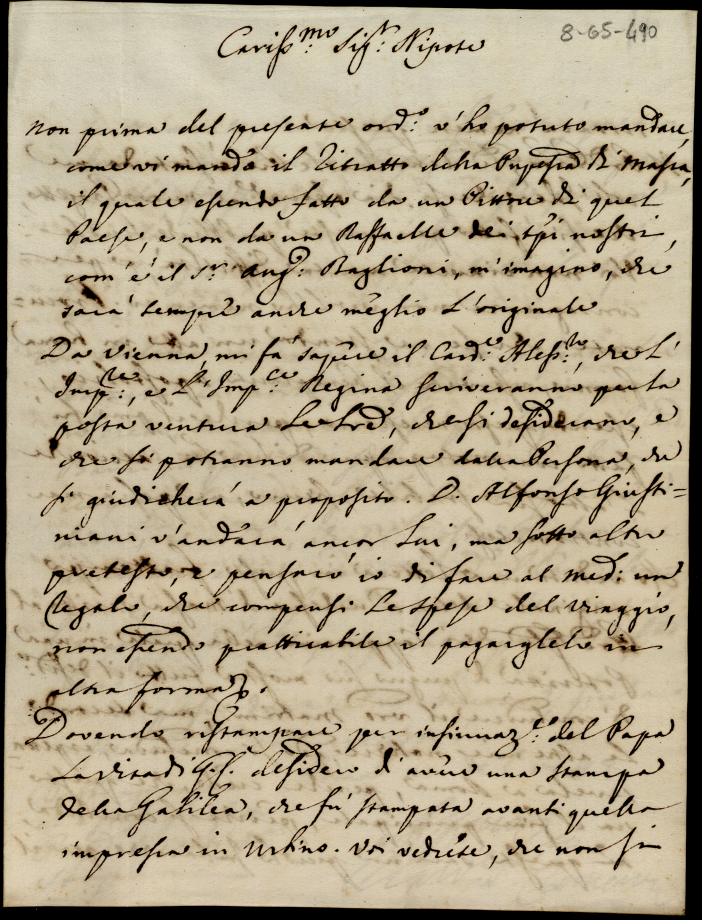 8-65-490
Cariss.mo Sig.r Nipote
Non prima del presente ord.o v'ho potuto mandare,
come vi mando il Ritratto della Pnpessa di Massa,
il quale essendo fatto da un Pittore di quel
Paese, e non da un Raffaelle dei tpi nostri,
com'è il S.r Aug.o Baglioni, m'imagino, che
sarà sempre anche meglio l'originale
Da Vienna mi fa sapere il Card.e Aless.o, che l'
Imp.re, e l'Imp.ce Regina scriveranno per la
posta ventura le Lre, che si desiderano, e
che si potranno mandare dalla Persona, che
si giudicherà a proposito. D. Alfonso Giusti=
niani v'andarà ancor lui, ma sotto altro
pretesto, e pensarò io di fare al med: un
regalo, che compensi le spese del viaggio,
non essendo pratticabile il pagarglielo in
altra forma.
Dovendo ristampare per insinuaz.e del Papa
la Vita di G. C. desidero d'avere una stampa
della Galilea, che fù stampata avanti quella
impressa in Urbino. Voi vedrete, che non si